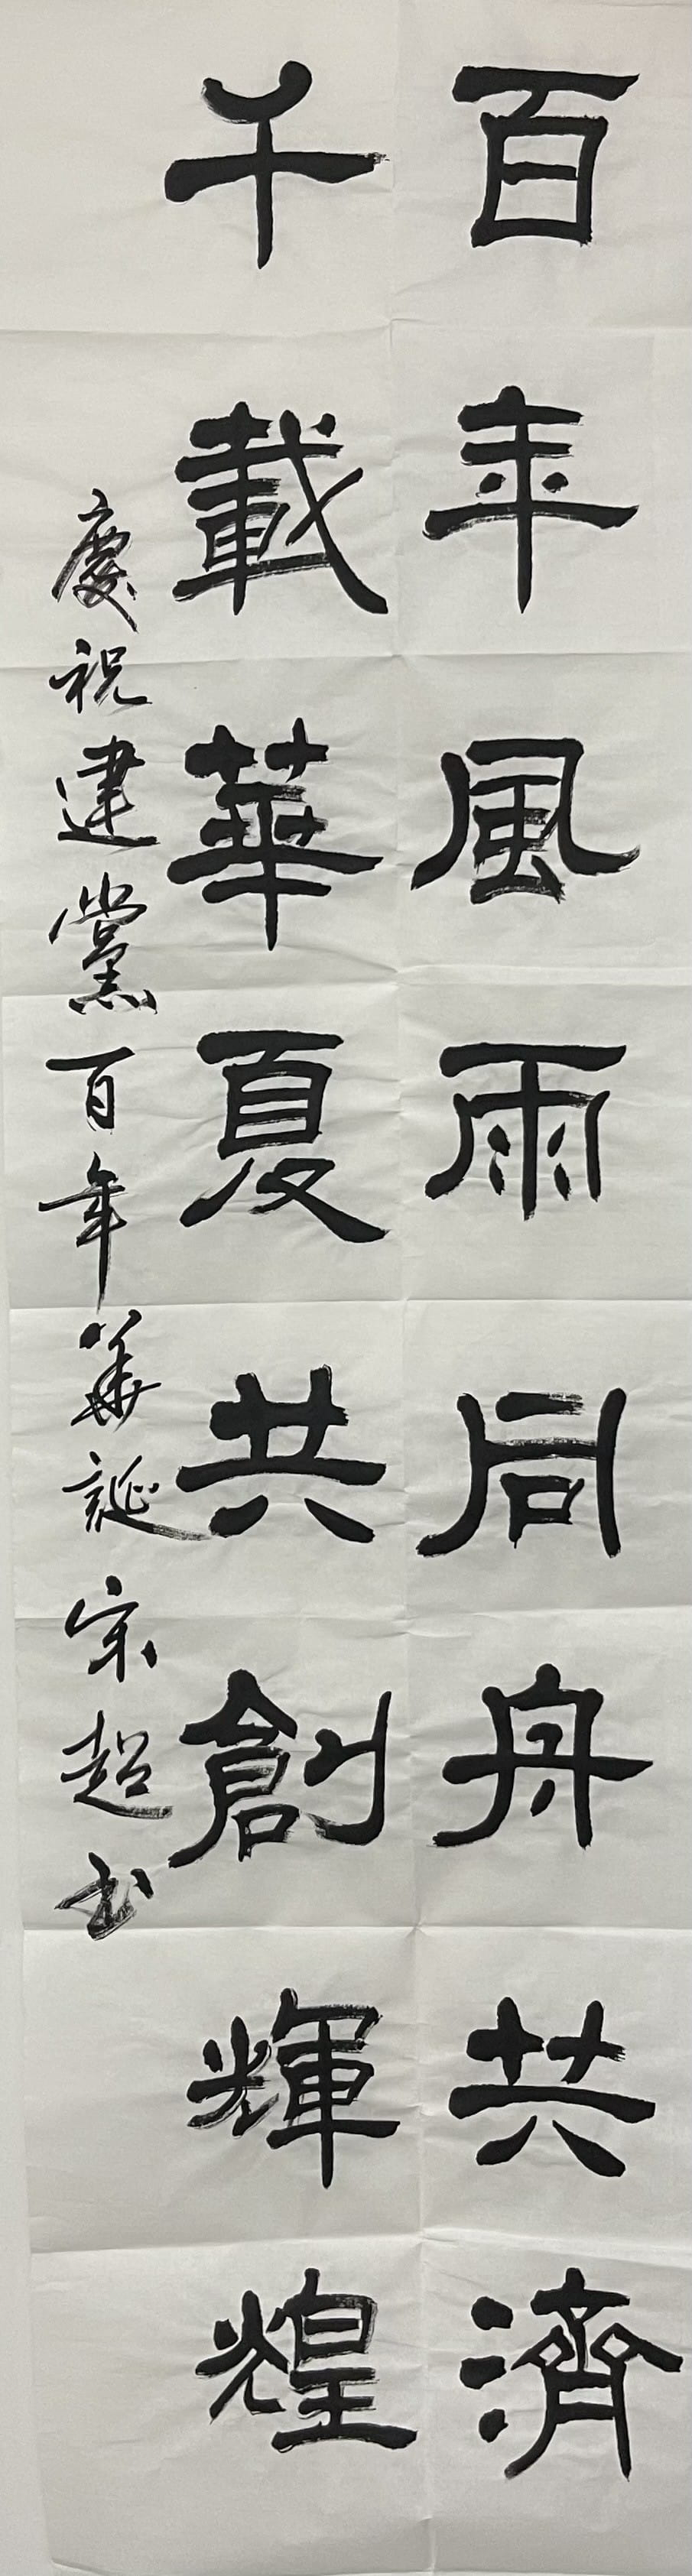 百年風雨同舟共濟
千載華夏共創輝煌
慶祝建黨百年華誕宋超书